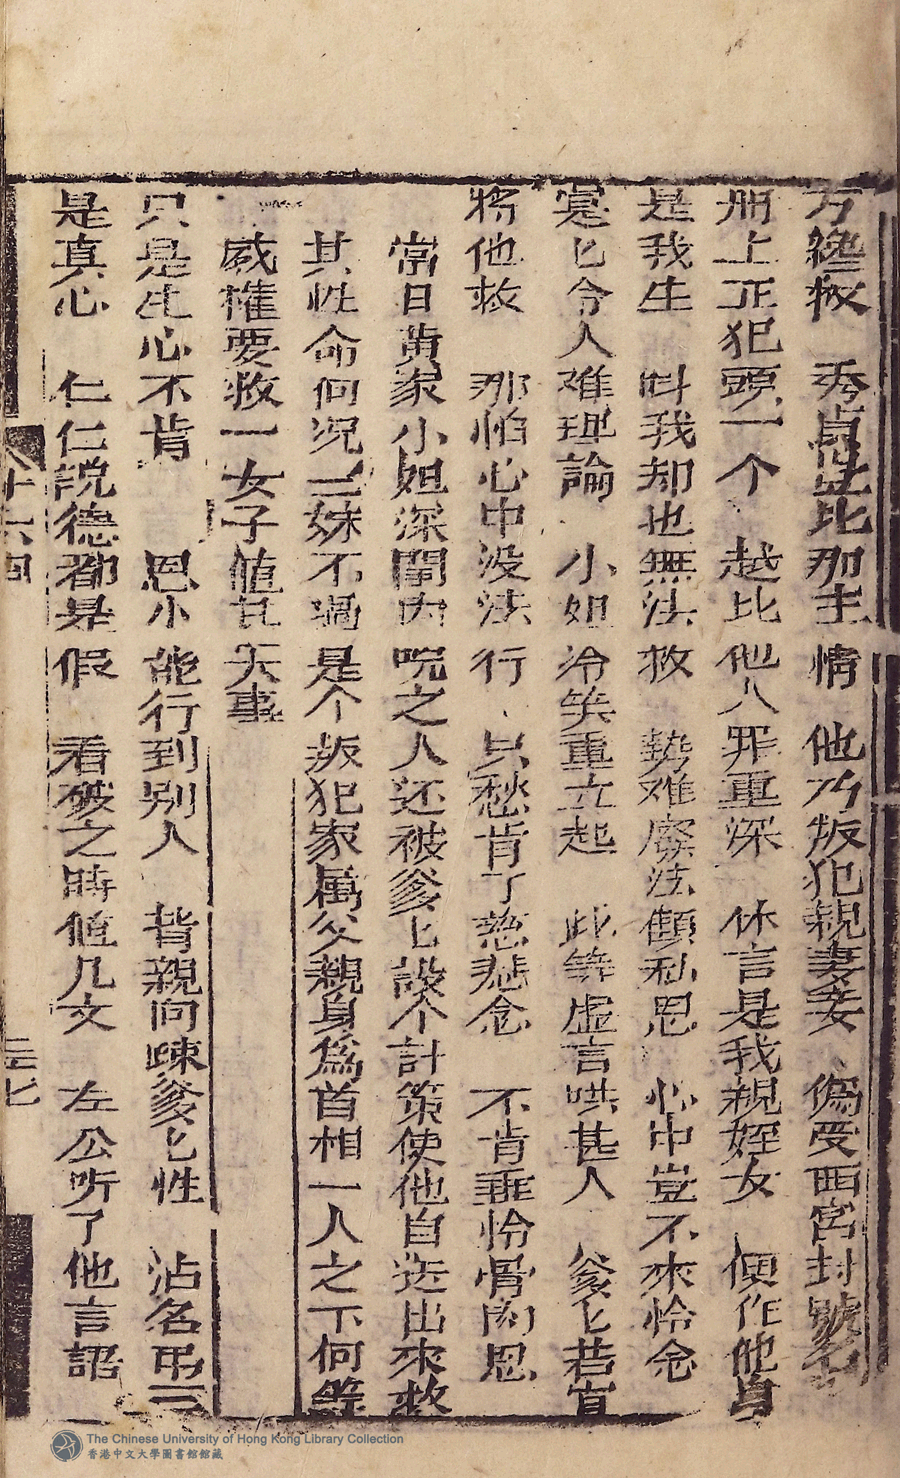 方纔救 秀貞此比那主情 他乃叛犯親妻妾 偽受西宫封號
册上正犯頭一个 越比他人罪重深 休言是我親姪女 便作他身
是我生 呌我却也無法救 势难廢法顧私恩 心中豈不來怜念
寔匕令人难理論 小姐冷笑重立起 此等虚言哄甚人 爹匕若肯
將他救 那怕心中没法行 只愁肯了慈悲念 不肯垂怜骨肉恩
當日黄家小姐深閨内院之人还被爹匕設个計策使他自送出來救
其性命何况三妹不過是个叛犯家属父親身爲首相一人之下何等
威權要救一女子值甚大事
只是生心不肯 恩小能行到别人 背親向疎爹匕性 沽名
是真心 仁仁説德都是假 看破之時值几文 左公听了他言語 一
十六四
三七
The Chinese University of Hong Kong Library Collection
香港中文大學圖書館館藏